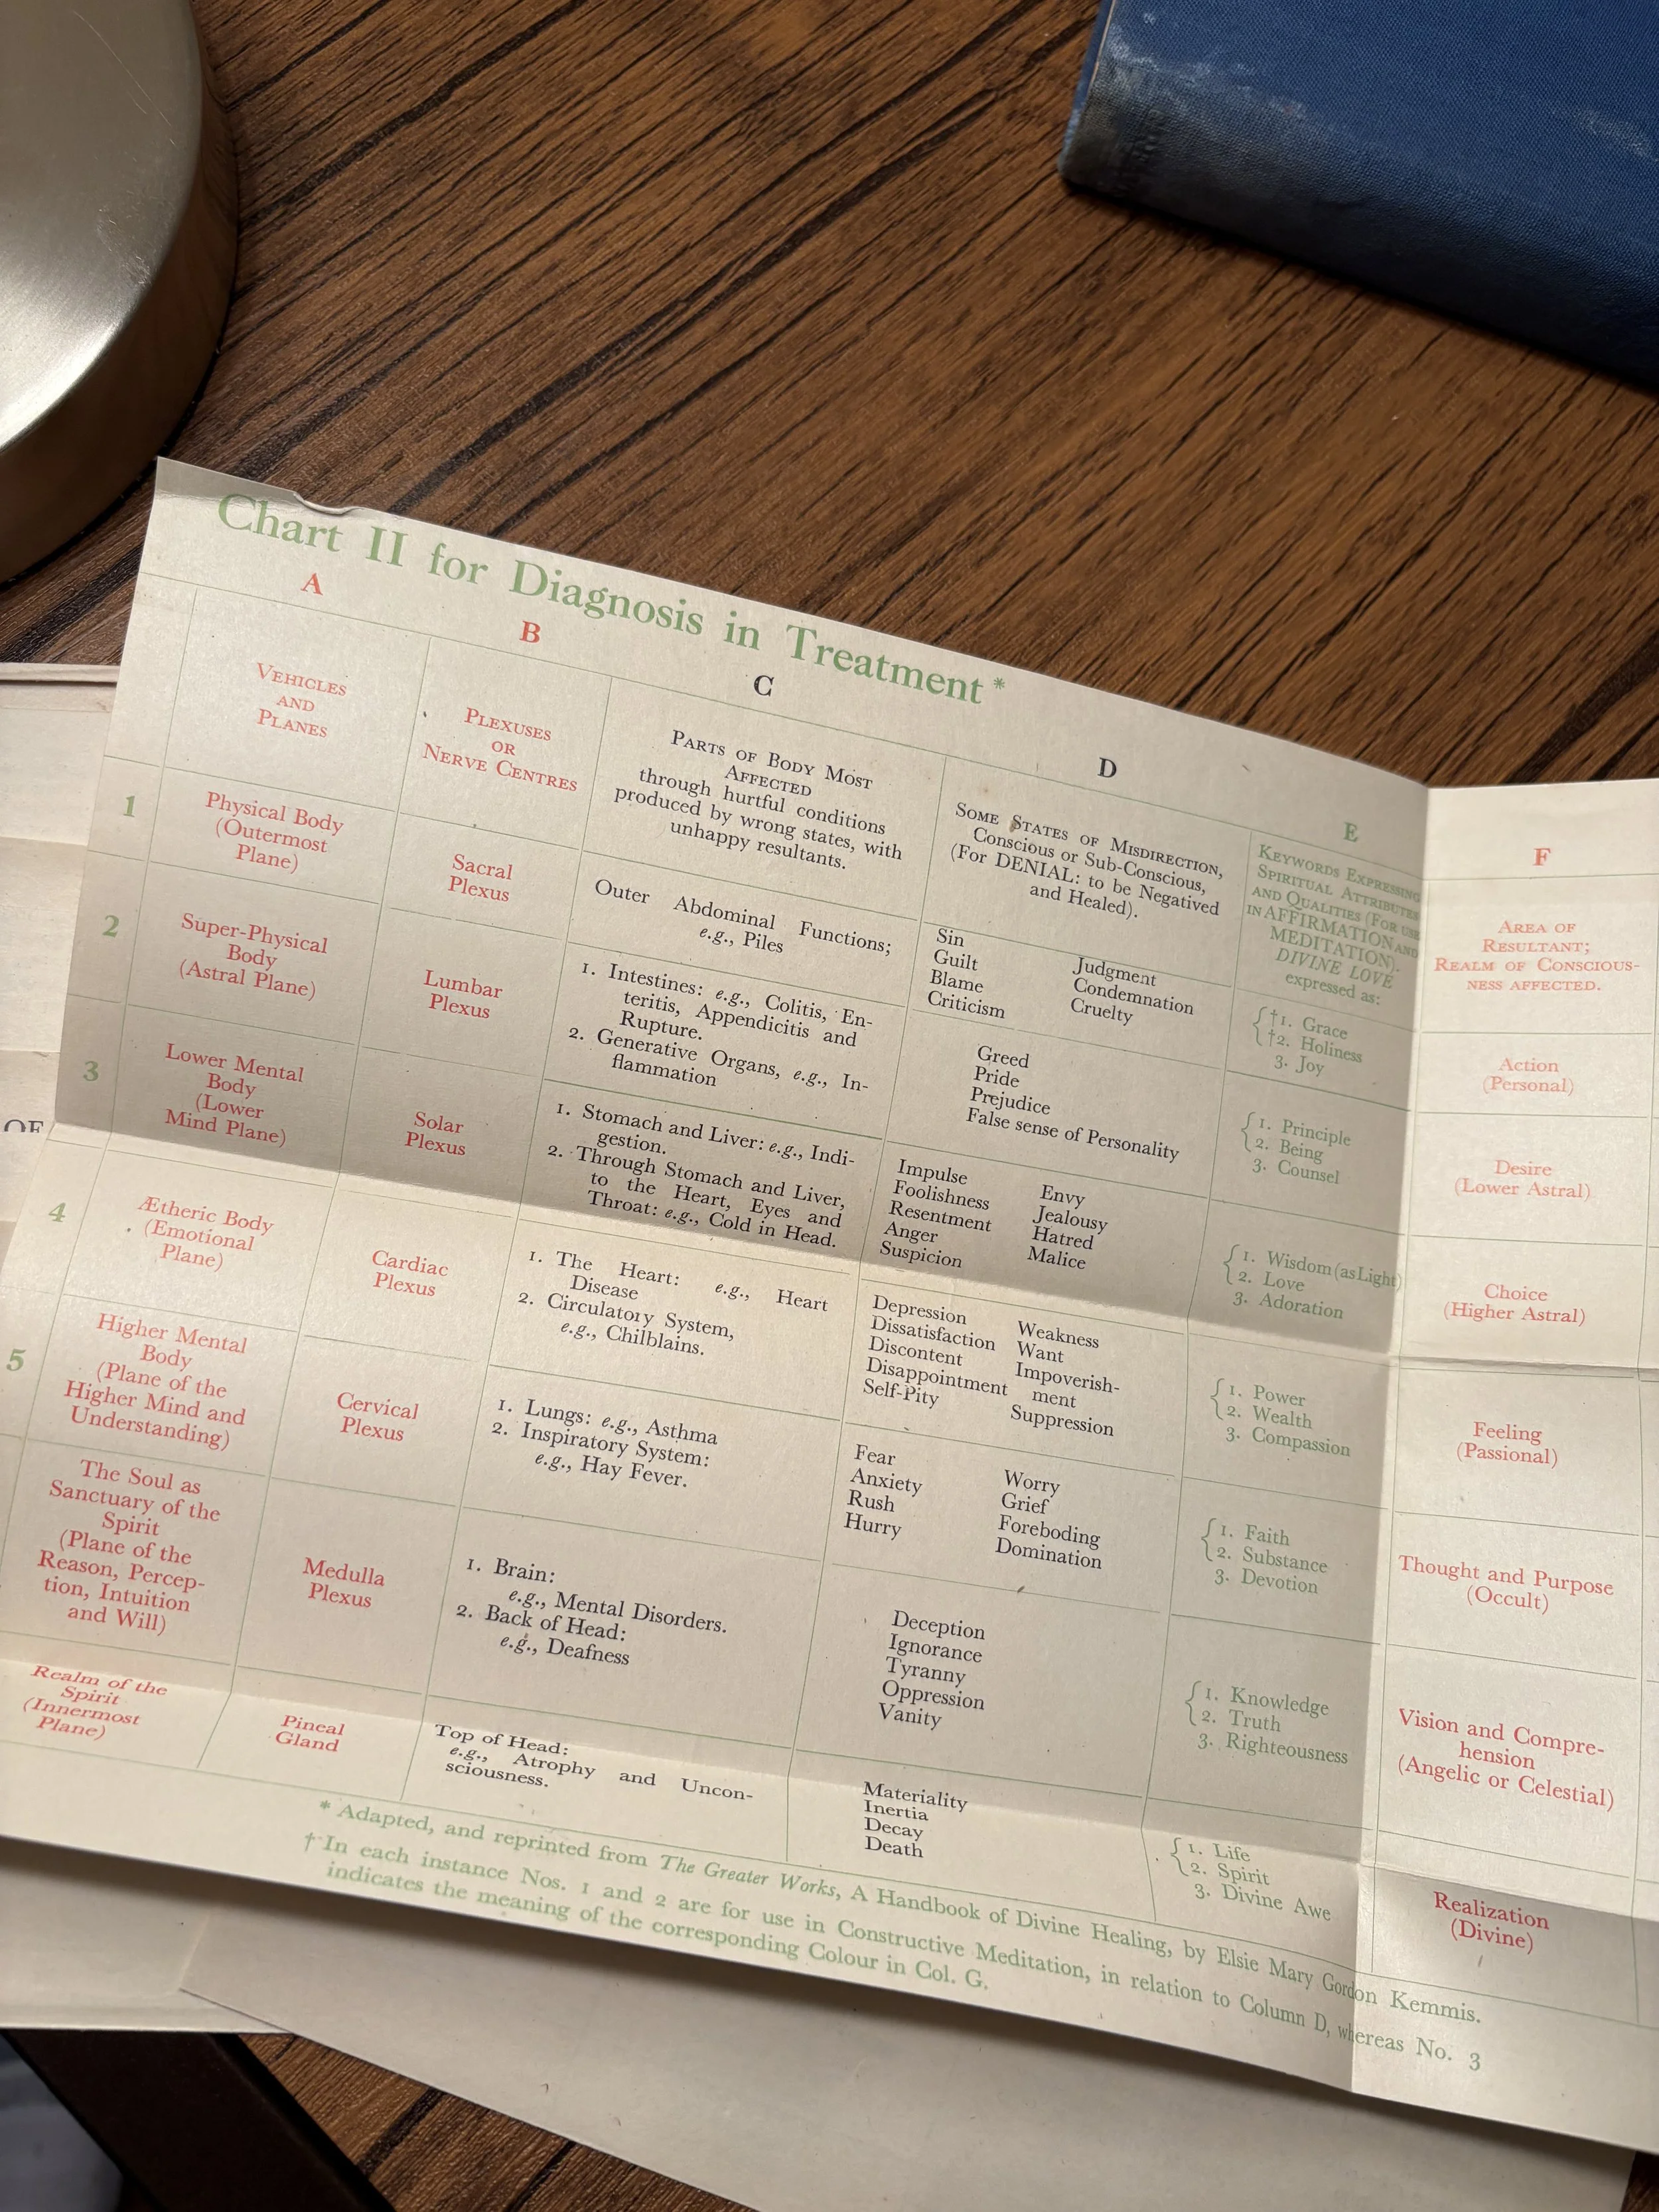 Chart II for Diagnosis in Treatment*
A
B
C
D
E
F
VEHICLES
AND
PLANES
PLEXUSES
OR
NERVE CENTRES
PARTS OF BODY MOST
AFFECTED
through hurtful conditions
produced by wrong states, with
unhappy resultants.
SOME STATES OF MISDIRECTION,
Conscious or Sub-Conscious,
(For DENIAL: to be Negatived
and Healed).
KEYWORDS EXPRESSING
SPIRITUAL ATTRIBUTES
AND QUALITIES (FOR USE
IN AFFIRMATION AND
MEDITATION).
DIVINE LOVE
expressed as:
AREA OF
RESULTANT;
REALM OF CONSCIOUS-
NESS AFFECTED.
1
Physical Body
(Outermost
Plane)
Sacral
Plexus
Outer Abdominal Functions;
e.g., Piles
Sin
Guilt
Blame
Criticism
Judgment
Condemnation
Cruelty
†1. Grace
†2. Holiness
3. Joy
Action
(Personal)
2
Super-Physical
Body
(Astral Plane)
Lumbar
Plexus
1. Intestines: e.g., Colitis, En-
teritis, Appendicitis and
Rupture.
2. Generative Organs, e.g., In-
flammation
Greed
Pride
Prejudice
False sense of Personality
1. Principle
2. Being
3. Counsel
Desire
(Lower Astral)
3
Lower Mental
Body
(Lower
Mind Plane)
Solar
Plexus
1. Stomach and Liver: e.g., Indi-
gestion.
2. Through Stomach and Liver,
to the Heart, Eyes and
Throat: e.g., Cold in Head.
Impulse
Foolishness
Resentment
Anger
Suspicion
Envy
Jealousy
Hatred
Malice
1. Wisdom (as Light)
2. Love
3. Adoration
Choice
(Higher Astral)
4
Ætheric Body
(Emotional
Plane)
Cardiac
Plexus
1. The Heart: e.g., Heart
Disease
2. Circulatory System,
e.g., Chilblains.
Depression
Dissatisfaction
Discontent
Disappointment
Self-Pity
Weakness
Want
Impoverish-
ment
Suppression
1. Power
2. Wealth
3. Compassion
Feeling
(Passional)
5
Higher Mental
Body
(Plane of the
Higher Mind and
Understanding)
Cervical
Plexus
1. Lungs: e.g., Asthma
2. Inspiratory System:
e.g., Hay Fever.
Fear
Anxiety
Rush
Hurry
Worry
Grief
Foreboding
Domination
1. Faith
2. Substance
3. Devotion
Thought and Purpose
(Occult)
The Soul as
Sanctuary of the
Spirit
(Plane of the
Reason, Percep-
tion, Intuition
and Will)
Medulla
Plexus
1. Brain:
e.g., Mental Disorders.
2. Back of Head:
e.g., Deafness
Deception
Ignorance
Tyranny
Oppression
Vanity
1. Knowledge
2. Truth
3. Righteousness
Vision and Compre-
hension
(Angelic or Celestial)
Realm of the
Spirit
(Innermost
Plane)
Pineal
Gland
Top of Head:
e.g., Atrophy and Uncon-
sciousness.
Materiality
Inertia
Decay
Death
1. Life
2. Spirit
3. Divine Awe
Realization
(Divine)
* Adapted, and reprinted from The Greater Works, A Handbook of Divine Healing, by Elsie Mary Gordon Kemmis.
† In each instance Nos. 1 and 2 are for use in Constructive Meditation, in relation to Column D, whereas No. 3
indicates the meaning of the corresponding Colour in Col. G.
OF